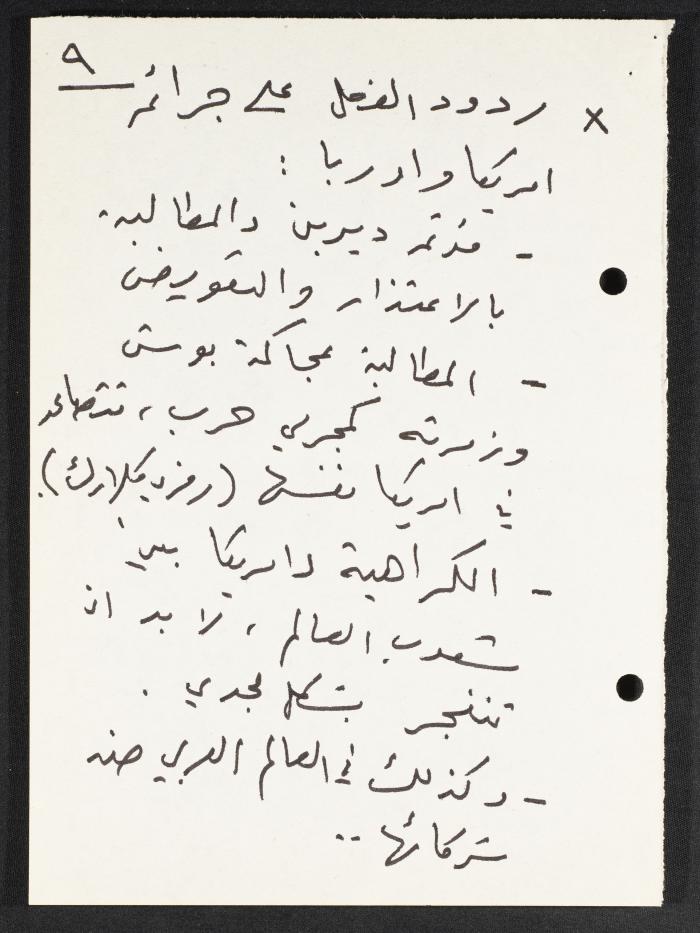 ٩
× ردود الفعل على جرائم
امريكا واوربا :
- مؤتمر ديربن والمطالبة
بالاعتذار والتعويض
- المطالبة بمحاكمة بوش
وزمرته كمجرمي حرب ، تتصاعد
في امريكا نفسها (رمزي كلارك).
- الكراهية لامريكا بين
شعوب العالم ، لا بد ان
تنفجر بشكل مجدي .
- وكذلك في العالم العربي ضد
شركائها ..